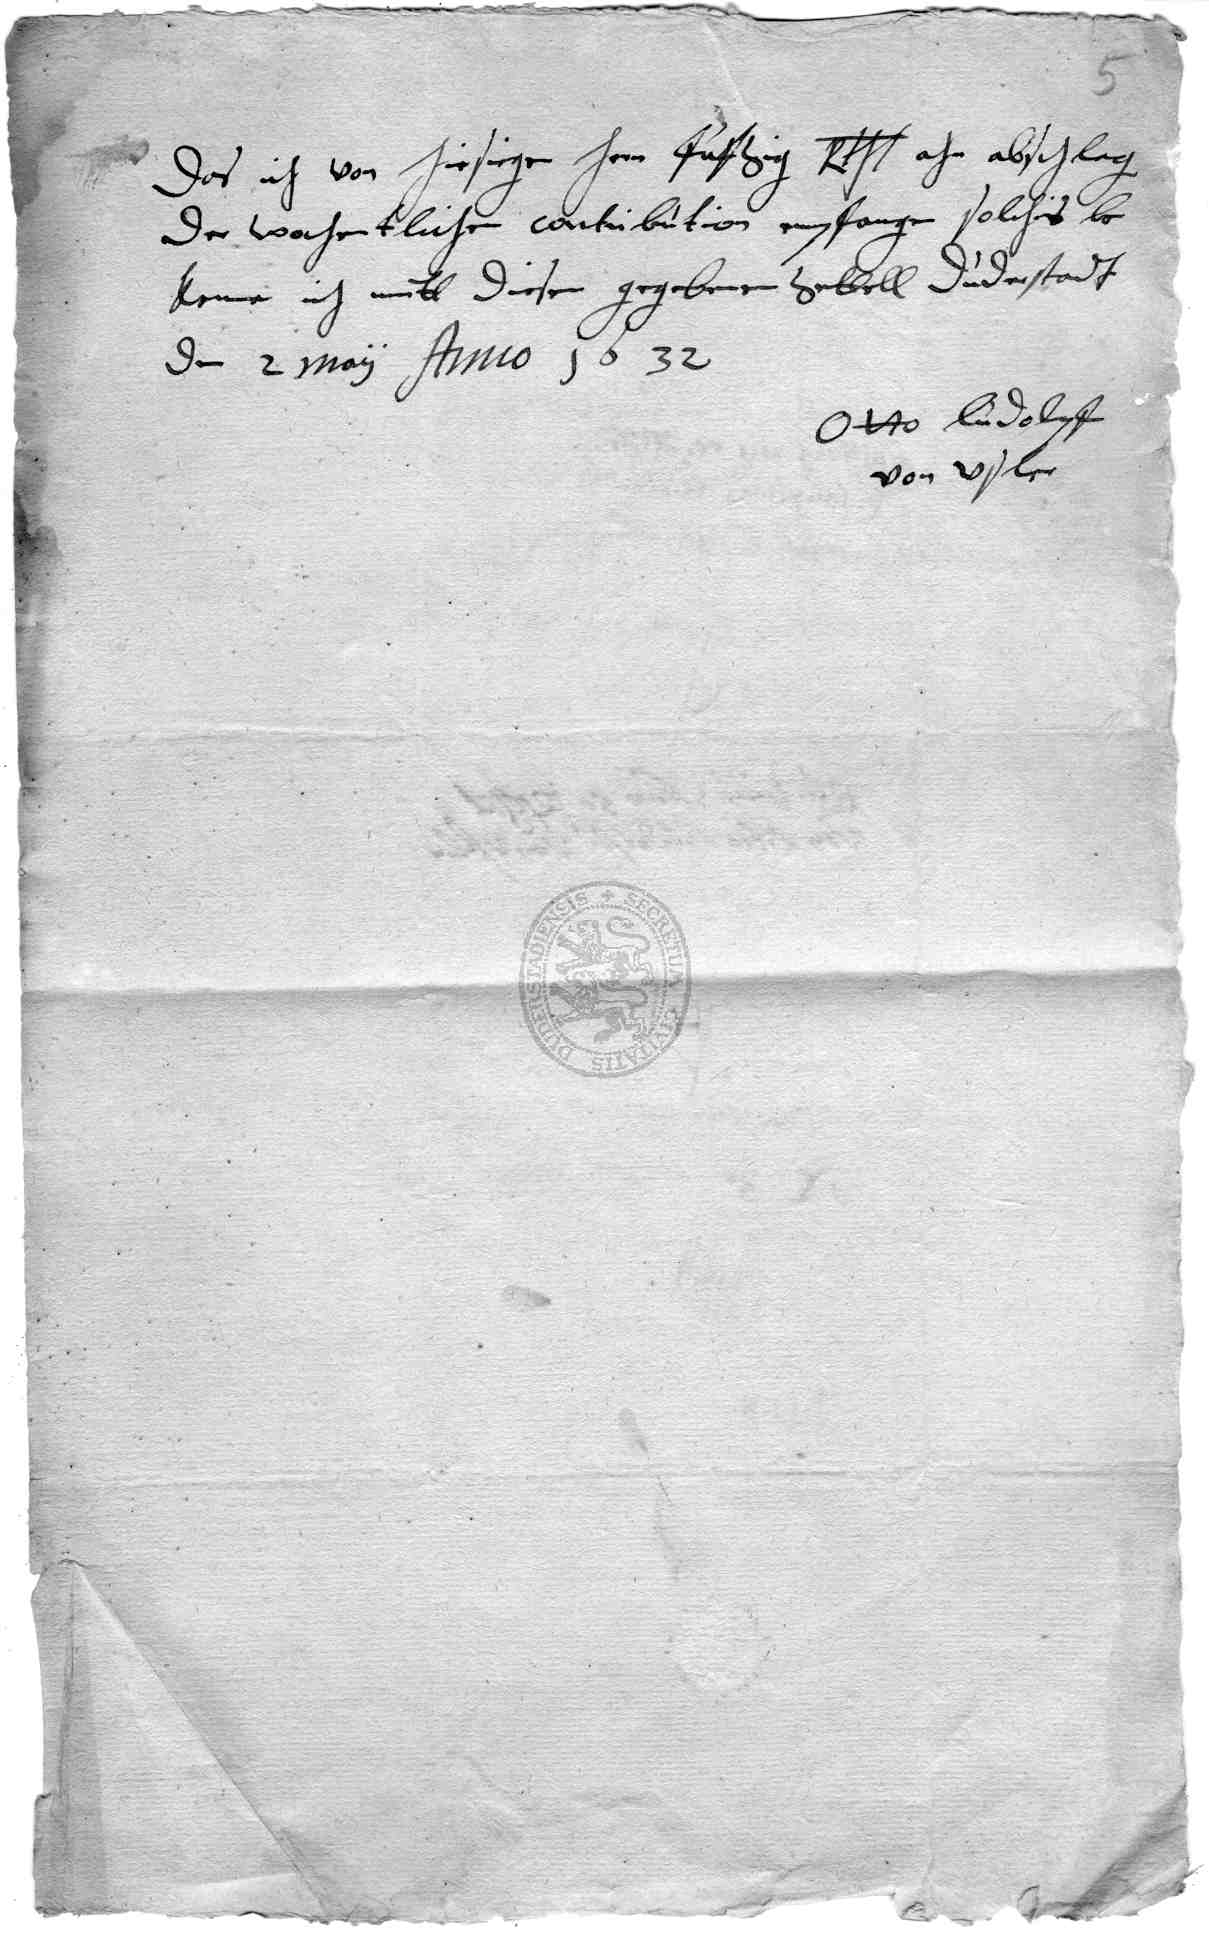 5
Das ich von hiesigen hern funfzig Rthl ahn abschlag
der wochentlichen contribution empfangen solches be
kenne ich mitt diesen gegebenen zettell Duderstadt
den 2 Maij Anno 1632
Otto Ludolff
von Usler
SECRETUM CIVITATIS DUDERSTADIENSIS